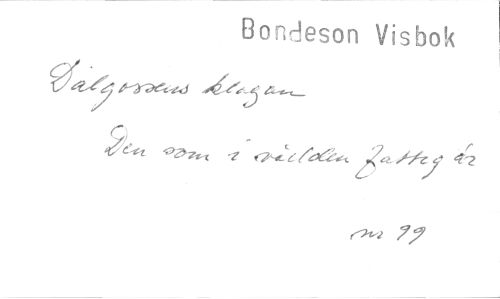 Bondeson Visbok
Dalgossens klagan
Den som i världen fattig är
nr 99